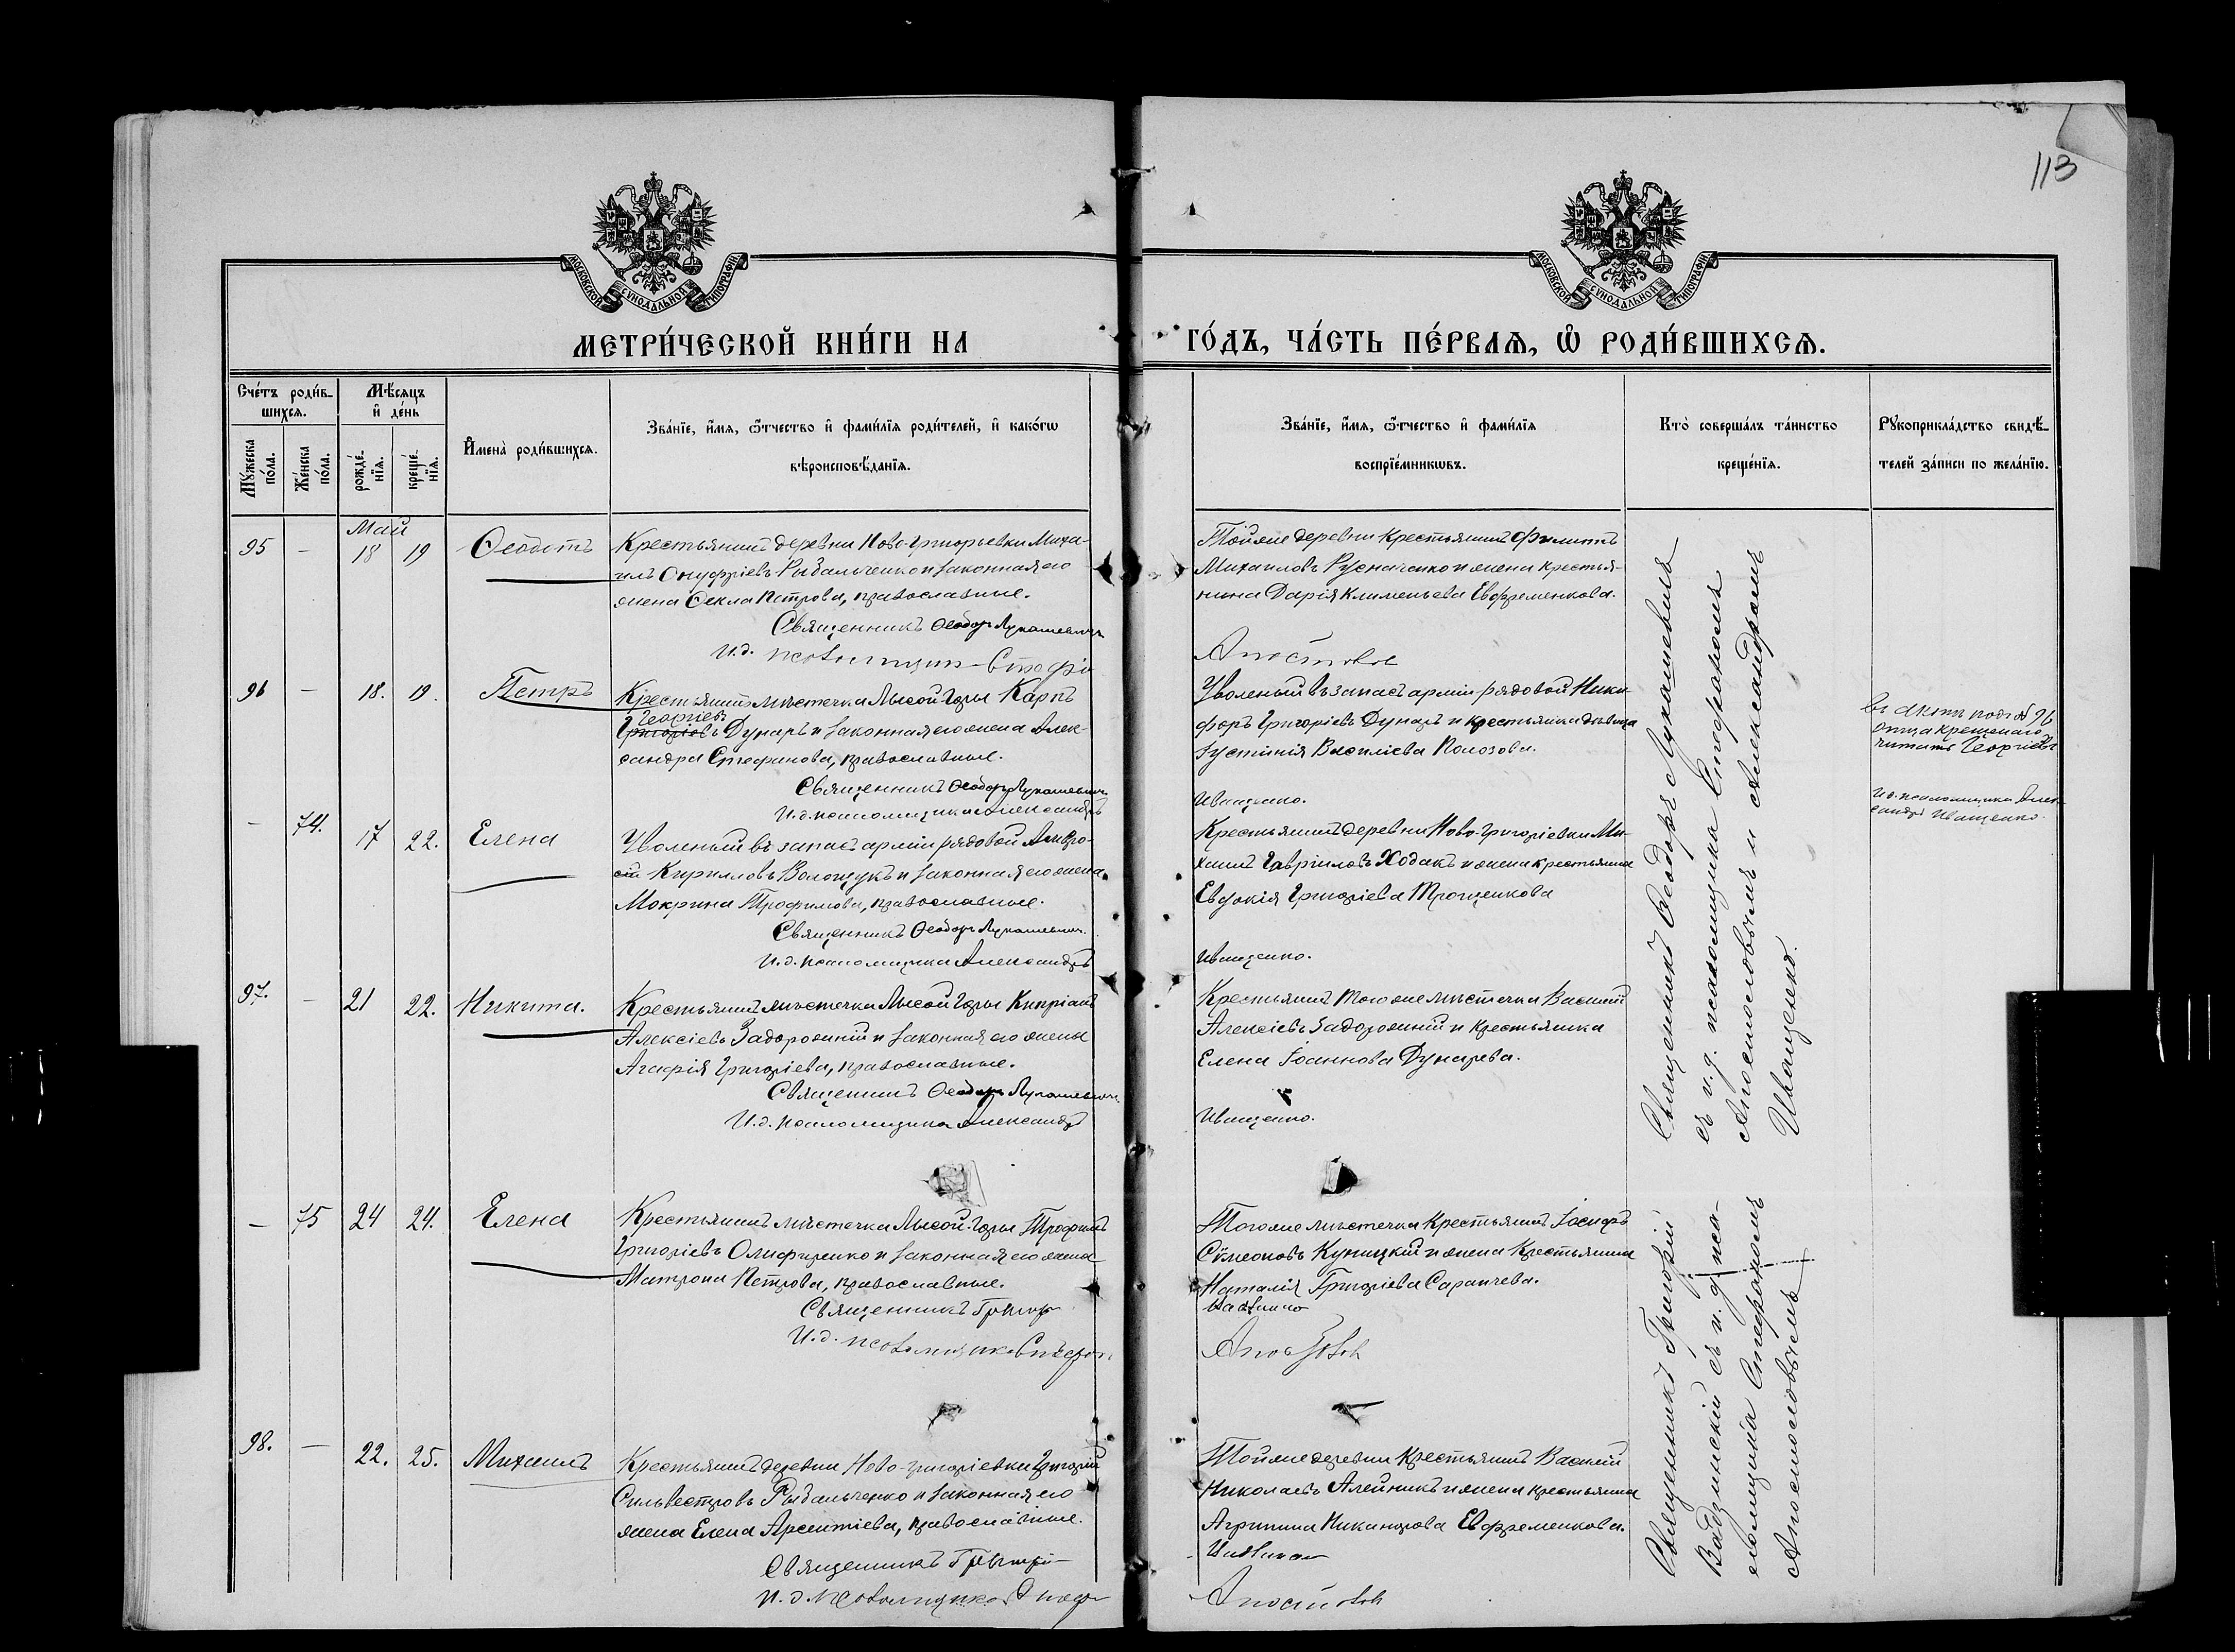 113
МОСКОВСКОЙ СѴНОДАЛЬНОЙ ТИПОГРАФІИ
МОСКОВСКОЙ СѴНОДАЛЬНОЙ ТИПОГРАФІИ
МЕТРИ́ЧЕСКОЙ КНИ́ГИ НА
ГО́ДЪ, ЧА́СТЬ ПЕ́РВАѦ, Ѡ҆ РОДИ́ВШИХСѦ.
Сче́тъ роди́в-
шихсѧ.
Мꙋ́жеска по́ла.
Же́нска по́ла.
Мѣ́сѧцъ
и҆ де́нь
рожде́-
нїѧ.
креще́-
нїѧ.
И҆мена̀ роди́вшихсѧ.
Зва́нїе, и҆́мѧ, ѻ҆́тчество и҆ фами́лїѧ роди́телей, и҆ како́гѡ
вѣроисповѣ́данїѧ.
Зва́нїе, и҆́мѧ, ѻ҆́тчество и҆ фами́лїѧ
воспрїе́мникѡвъ.
Кто̀ соверша́лъ та́инство
креще́нїѧ.
Рꙋкоприкла́дство свидѣ́-
телей за́писи по жела́нїю.
Май
95 — 18 19 Ѳеодотъ
Крестьянинъ деревни Ново-Григорьевки Миха-
илъ Онуфріевъ Рыбальченко и законная его
жена Ѳекла Петрова, православные.
Священникъ Ѳеодоръ Лукашевичъ
И.д. псаломщика Стефа
Тойже деревни крестьянинъ Филиппъ
Михаиловъ Русначенко и жена крестья-
нина Дарія Климентьева Евфременкова.
Апостолов
96 — 18. 19. Петръ
Крестьянинъ мѣстечка Лысой-Горы Карпъ
Георгіев
Григоріевъ Дунаръ и законная его жена Алек-
сандра Стефанова, православные.
Священникъ Ѳеодоръ Лукашевичъ
И.д. псаломщика Александръ
Уволеный въ запасъ арміи рядовой Ники-
форъ Григоріевъ Дунаръ и крестьянка дѣвица
Іустинія Василіева Полозова.
Иващенко.
Въ актѣ подъ № 96
отца крещенаго
читать Георгіевъ
И.д. псаломщика Алек-
сандръ Иващенко.
— 74. 17 22. Елена
Уволеный въ запасъ арміи рядовой Амвро-
сій Кирилловъ Волощукъ и законная его жена
Мокрина Трофимова, православные.
Священникъ Ѳеодоръ Лукашевичъ.
И.д. псаломщика Александръ
Крестьянинъ деревни Ново-Григоріевки Ми-
хаилъ Гавріиловъ Ходакъ и жена крестьянина
Евдокія Григоріева Трощенкова
Иващенко.
97. — 21 22. Никита.
Крестьянинъ мѣстечка Лысой Горы Кипріанъ
Алексіевъ Задорожній и законная его жена
Агафія Григоріева, православные.
Священникъ Ѳеодоръ Лукашевичъ
И.д. псаломщика Александръ
Крестьянинъ того же мѣстечка Василій
Алексіевъ Задорожній и крестьянка
Елена Іоаннова Дунарева.
Иващенко.
Священникъ Ѳеодоръ Лукашевичъ
съ и.д. псаломщика Стефаномъ
Апостоловымъ и Александромъ
Иващенко.
— 75 24 24. Елена
Крестьянинъ мѣстечка Лысой-Горы Трофимъ
Григоріевъ Олифиренко и законная его жена
Матрона Петрова, православные.
Священникъ Григор
И.д. псаломщика Стефан
Того же мѣстечка крестьянинъ Іосифъ
Сѵмеоновъ Куницкій и жена крестьянина
Наталія Григоріева Саранчева.
Апостолов
98. — 22. 25. Михаилъ
Крестьянинъ деревни Ново-Григоріевки Григорій
Сильвестровъ Рыбальченко и законная его
жена Елена Арсентіева, православные.
Священникъ Григорій
И.д. псаломщика Стефан
Тойже деревни крестьянинъ Василій
Николаевъ Алейникъ и жена крестьянина
Агрипина Никандрова Евфременкова.
Апостолов
Священникъ Григорій
съ и.д. пса-
ломщика Стефаномъ
Апостоловымъ